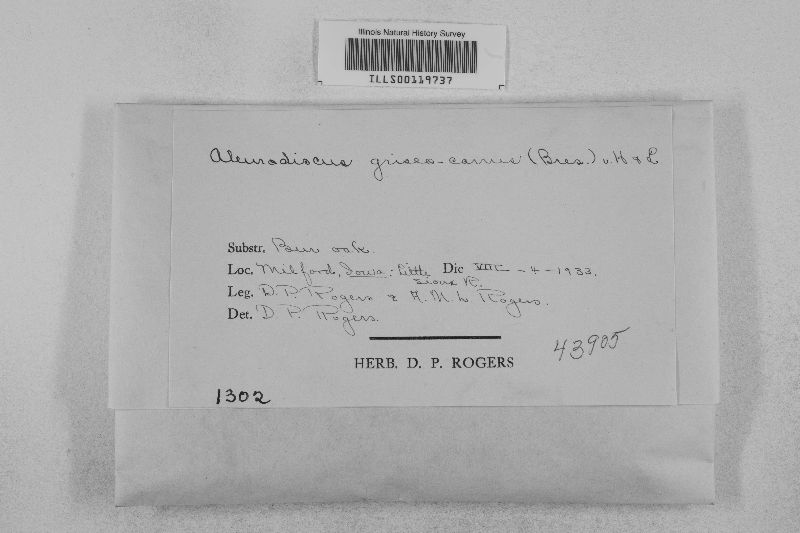 Illinois Natural History Survey
ILLS00119737
Aleurodiscus griseo-canus (Bres.) v. H & L
Substr. Bur oak.
Loc. Milford, Iowa: Little Sioux R. Die VIII - 4 - 1933.
Leg. D. P. Rogers & H. M. L. Rogers.
Det. D. P. Rogers.
HERB. D. P. ROGERS
43905
1302